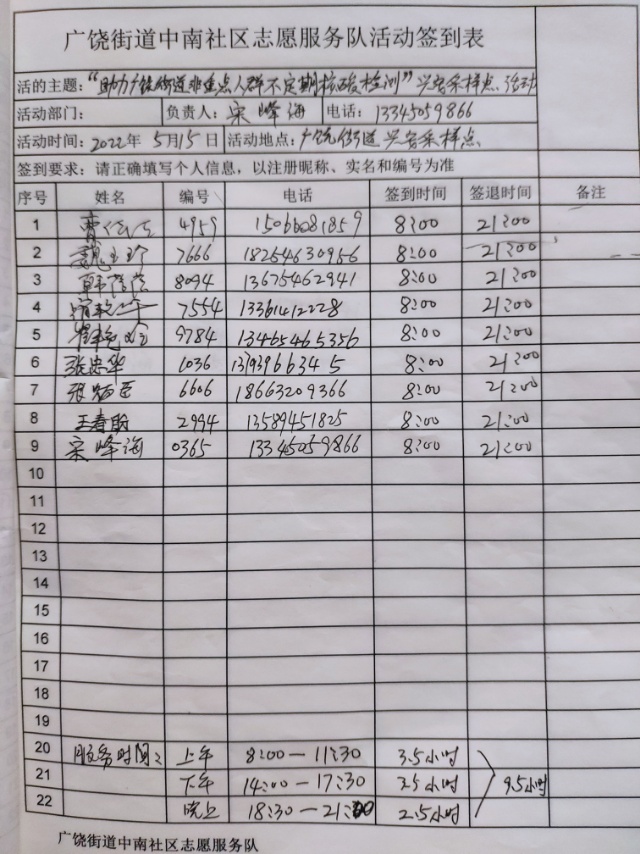 广饶街道中南社区志愿服务队活动签到表
活的主题：“助力广饶街道非重点人群不定期核酸检测”兴安采样点活动
活动部门： 负责人：宋峰海 电话：13345059866
活动时间：2022年5月15日 活动地点：广饶街道兴安采样点
签到要求：请正确填写个人信息，以注册昵称、实名和编号为准
序号 姓名 编号 电话 签到时间 签退时间 备注
1 曹 4959 15066081859 8:00 21:00
2 魏玉珍 7666 18254630956 8:00 21:00
3 韩 8094 13675462941 8:00 21:00
4 7554 13361412228 8:00 21:00
5 崔艳玲 9784 13465465356 8:00 21:00
6 张忠华 1036 8:00 21:00
7 张 6606 18663209366 8:00 21:00
8 王春 2994 13589451825 8:00 21:00
9 宋峰海 0365 13345059866 8:00 21:00
10
11
12
13
14
15
16
17
18
19
20 服务时间： 上午 8:00—11:30 3.5小时
21 下午 14:00—17:30 3.5小时 9.5小时
22 晚上 18:30—21:00 2.5小时
广饶街道中南社区志愿服务队